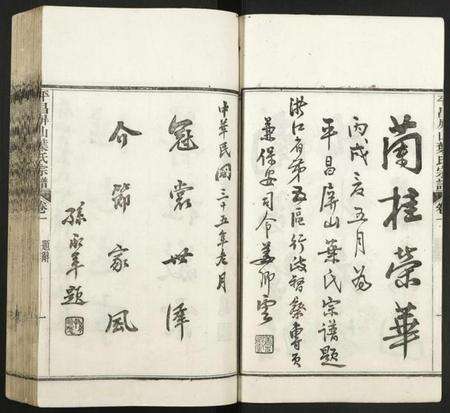 蘭桂榮華
丙戌夏五月為
平昌屏山葉氏宗譜題
浙江省第五區行政督察專員
兼保安司令姜卿雲
平昌屏山葉氏宗譜
卷一
中華民國三十五年 月
冠裳世澤
介節家風
孫 題
平昌屏山葉氏宗譜
卷一
題辭
一